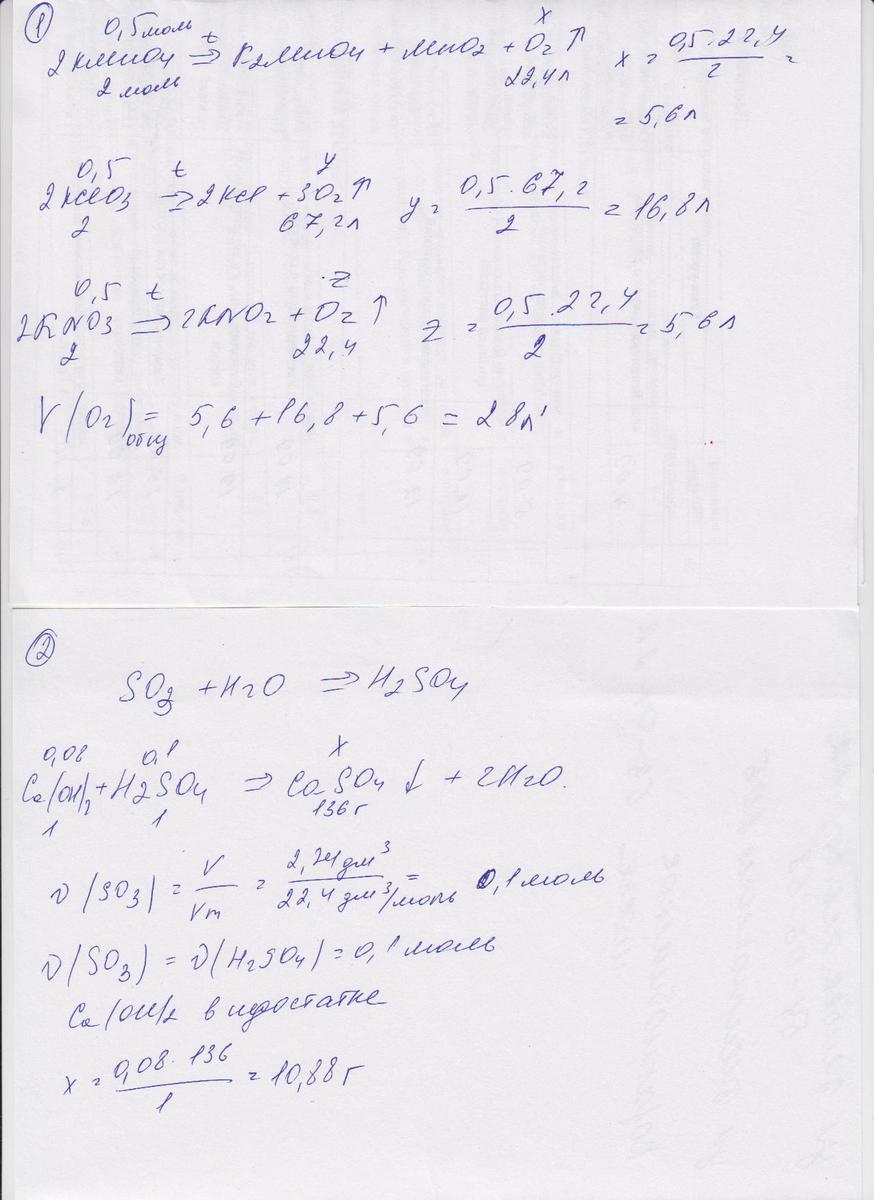 1
0,5 моль t x
2KMnO4 ⇒ K2MnO4 + MnO2 + O2 ↑ x = 0,5·22,4 / 2 =
2 моль 22,4 л
= 5,6 л
0,5 t y
2KClO3 ⇒ 2KCl + 3O2 ↑ y = 0,5·67,2 / 2 = 16,8 л
2 67,2 л
0,5 t z
2KNO3 ⇒ 2KNO2 + O2 ↑ z = 0,5·22,4 / 2 = 5,6 л
2 22,4
V(O2)общ = 5,6 + 16,8 + 5,6 = 28 л
2
SO3 + H2O ⇒ H2SO4
0,08 0,1 x
Ca(OH)2 + H2SO4 ⇒ CaSO4 ↓ + 2H2O.
1 1 136 г
ν(SO3) = V / Vm = 2,24 дм3 / 22,4 дм3/моль = 0,1 моль
ν(SO3) = ν(H2SO4) = 0,1 моль
Ca(OH)2 в недостатке
x = 0,08·136 / 1 = 10,88 г